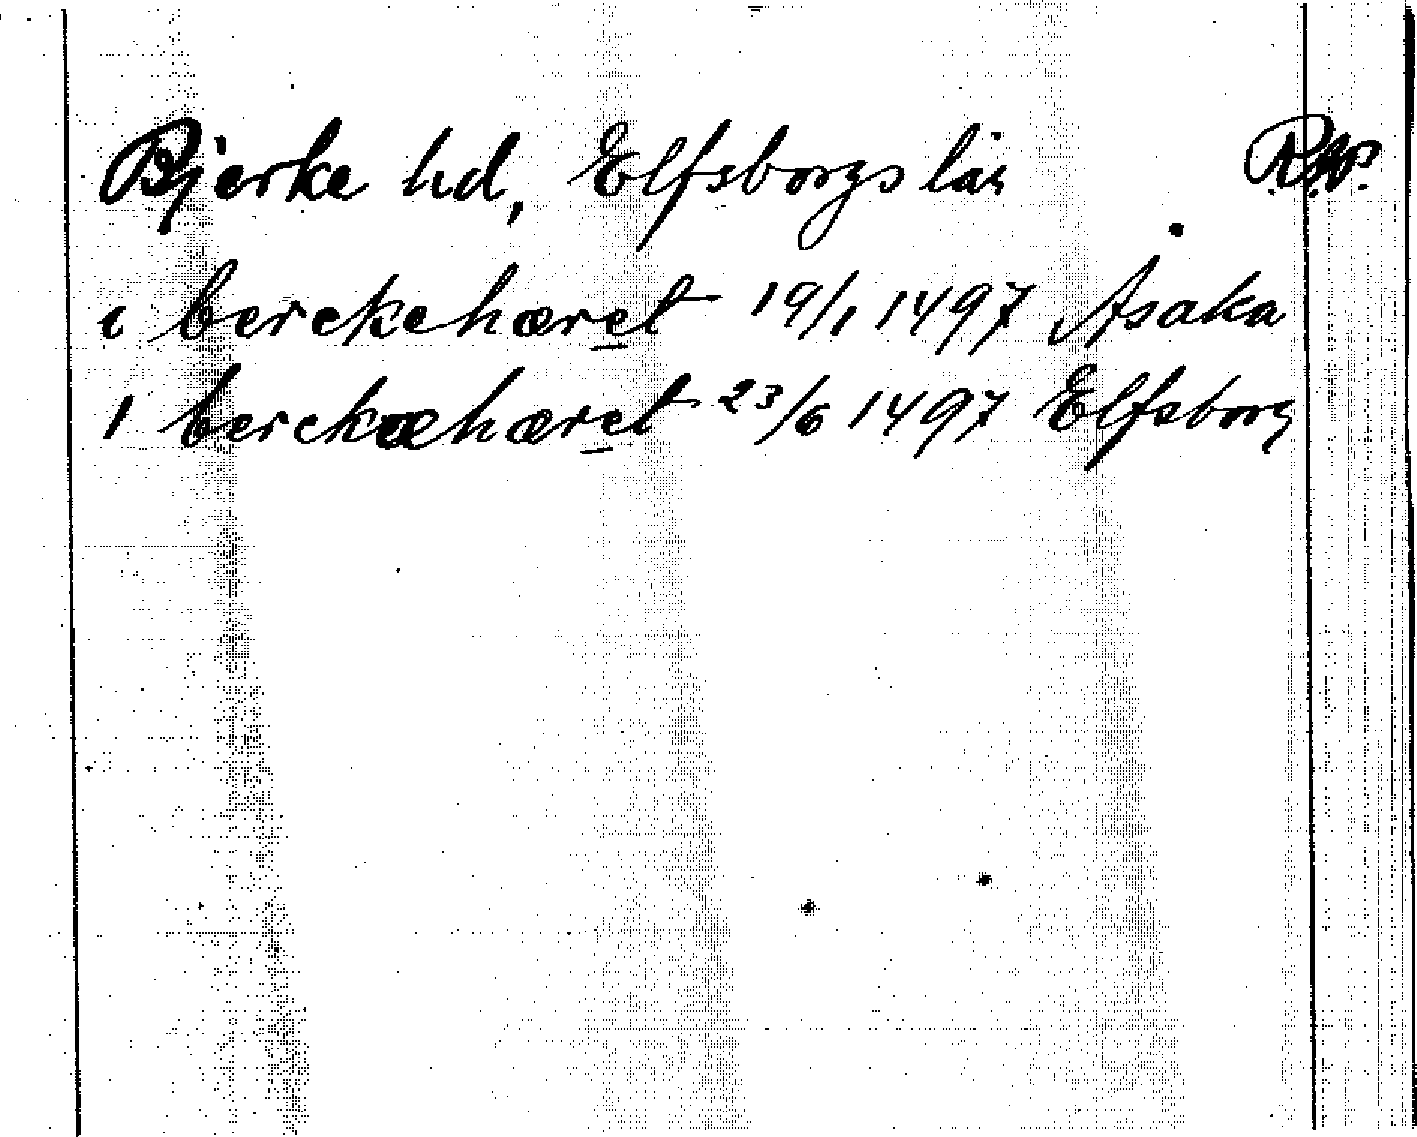 Bjerke hd, Elfsborgs län R.W.
i berekehæret 19/1 1497 Åsaka
i berekæhæret 23/6 1497 Elfsborg